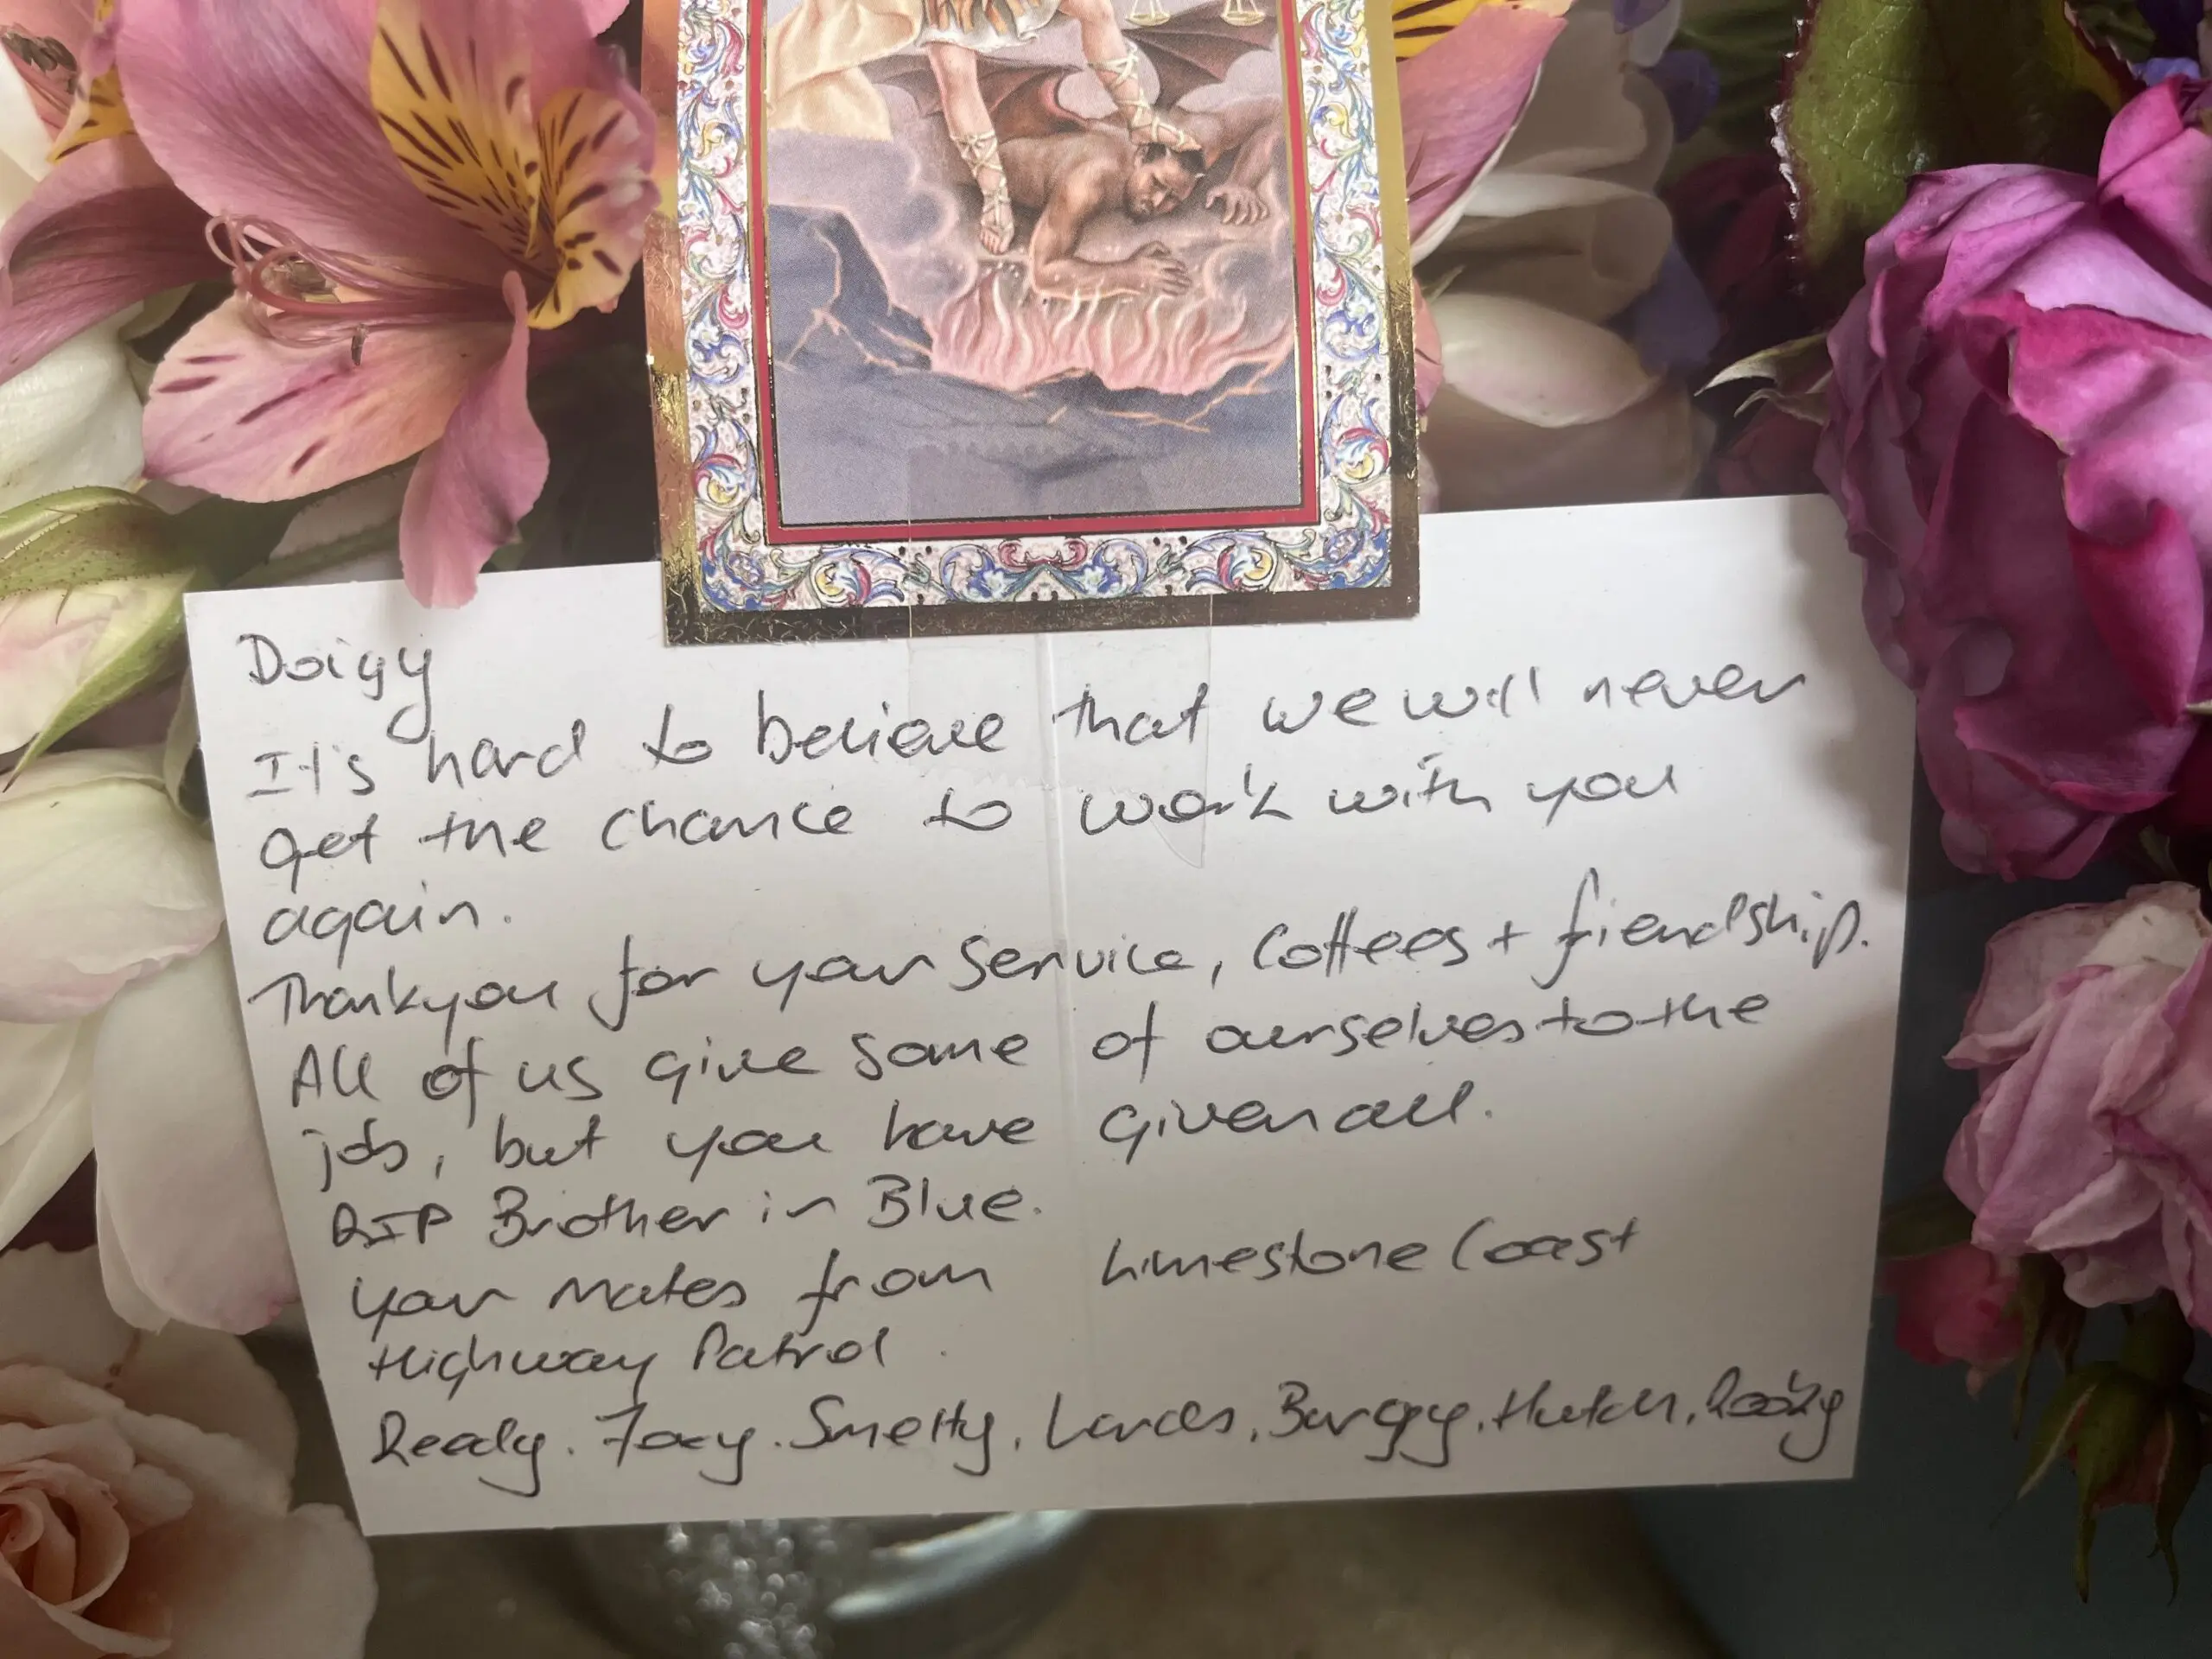 Doigy
It's hard to believe that we will never
get the chance to work with you
again.
Thankyou for your service, Coffees + friendship.
All of us give some of ourselves to the
job, but you have given all.
RIP Brother in Blue.
Your mates from Limestone Coast
Highway Patrol.
Ready. Foxy. Smelty, Bargy, Hutch,